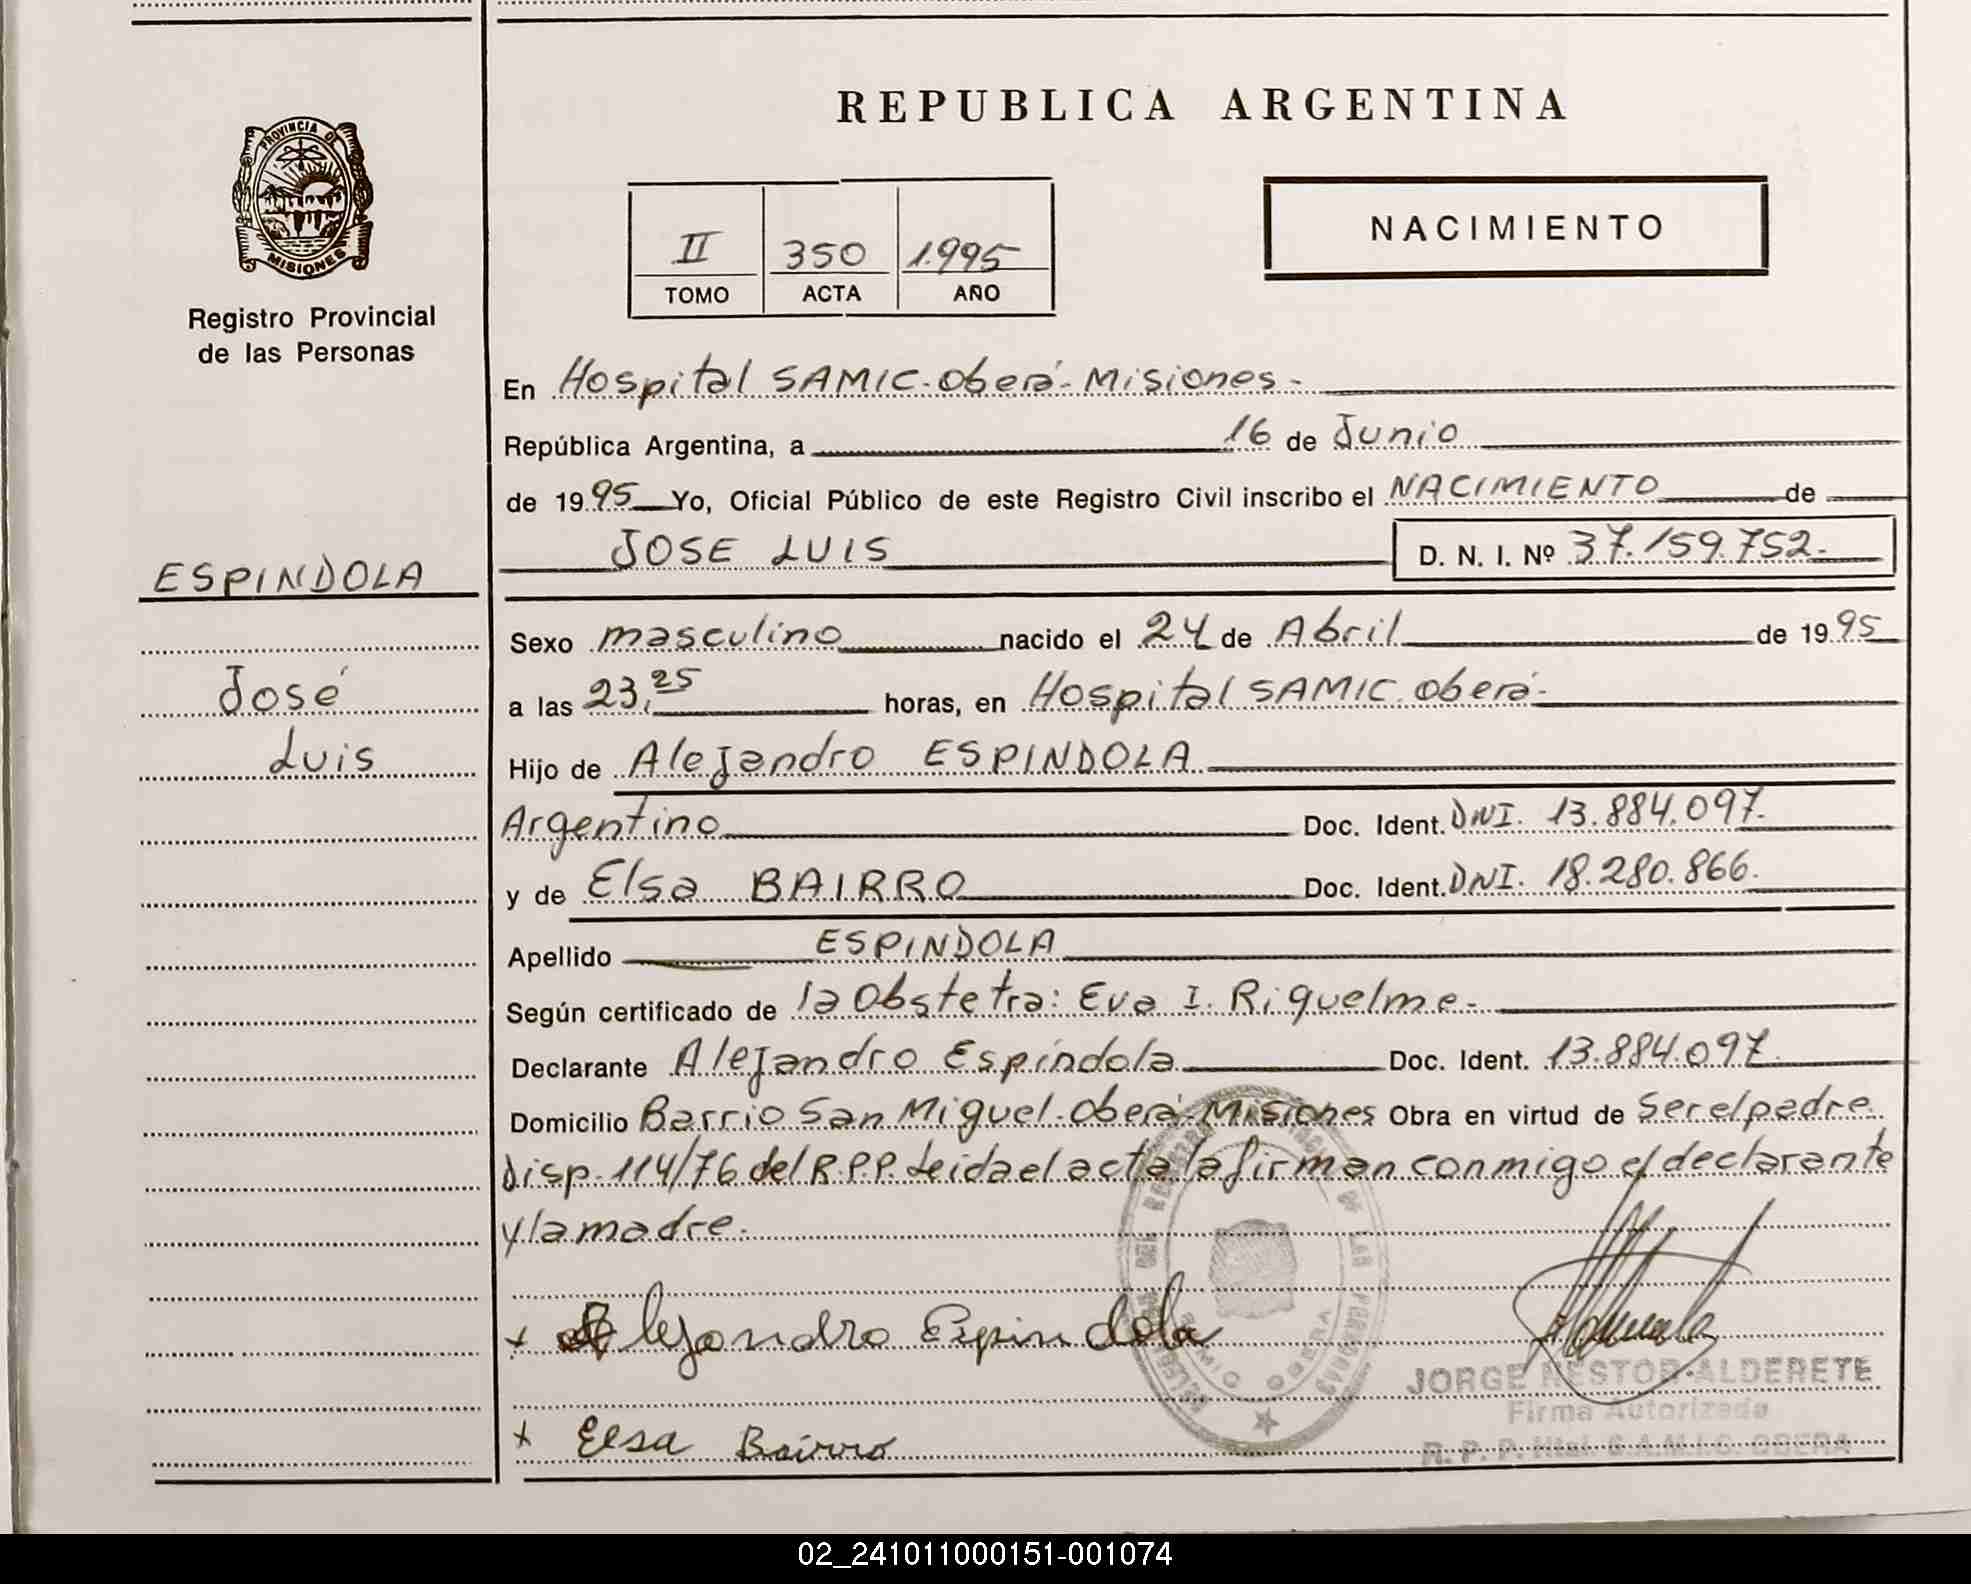 REPUBLICA ARGENTINA
PROVINCIA DE
MISIONES
Registro Provincial
de las Personas
II 350 1.995
TOMO ACTA AÑO
NACIMIENTO
En Hospital SAMIC-Oberá-Misiones-
República Argentina, a 16 de Junio
de 1995 Yo, Oficial Público de este Registro Civil inscribo el NACIMIENTO de
JOSE LUIS D. N. I. Nº 37.159.752.-
ESPINDOLA
José
Luis
Sexo masculino nacido el 24 de Abril de 1995
a las 23,25 horas, en Hospital SAMIC-Oberá-
Hijo de Alejandro ESPINDOLA
Argentino Doc. Ident. DNI. 13.884.097.
y de Elsa BAIRRO Doc. Ident. DNI. 18.280.866.
Apellido ESPINDOLA
Según certificado de la Obstetra: Eva I. Riquelme-
Declarante Alejandro Espíndola Doc. Ident. 13.884.097.
Domicilio Barrio San Miguel-Oberá-Misiones Obra en virtud de Ser el padre
Disp. 114/76 del R.P.P. Leida el acta la firman conmigo el declarante
y la madre.
+ Alejandro Espindola
JORGE NESTOR ALDERETE
Firma Autorizada
R. P. P. Htal. S.A.M.I.C. OBERA
+ Elsa Bairro
02_241011000151-001074